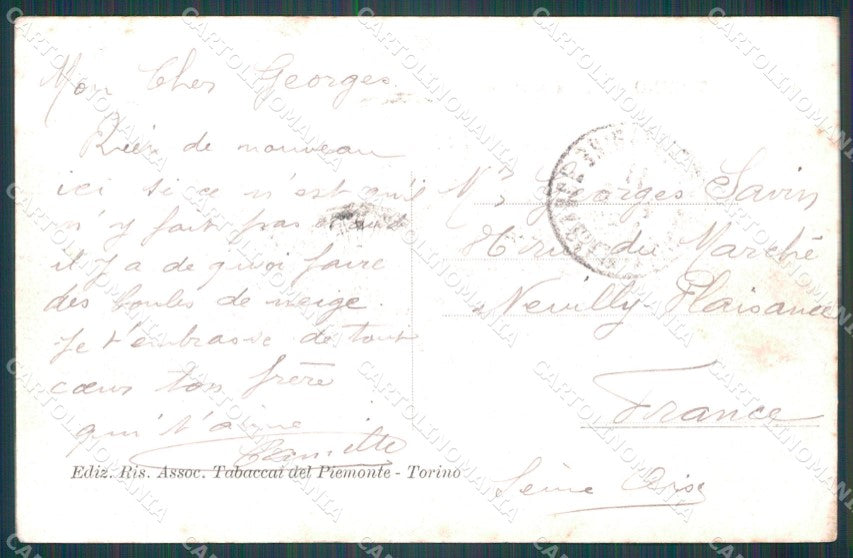 Mon Cher Georges
Rien de nouveau
ici si ce n'est qu'il
n'y fait pas chaud
il y a de quoi faire
des boules de neige.
Je t'embrasse de tout
cœur ton frère
qui t'aime
Ediz. Ris. Assoc. Tabaccai del Piemonte - Torino
Mr Georges Savin
rue du Marché
Neuilly-Plaisance
France
Seine Oise
CARTOLINOMANIA